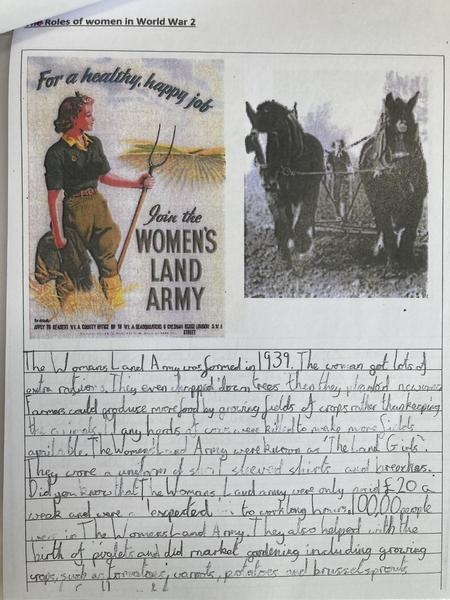 The Roles of women in World War 2
For a healthy, happy job
Join the
WOMEN'S
LAND
ARMY
The Womans Land Army was formed in 1939. The woman got lots of
extra rations. They even chopped down trees then they planted new ones
Farmers could produce more food by growing fields of crops rather than keeping
the animals. Many herds of cows were killed to make more fields
available. The Womens Land Army were known as 'The Land Girls'.
They wore a uniform of short sleeved shirts and breeches.
Did you know that The Womans Land army were only paid £20 a
week and were expected to work long hours. 100,00 people
were in The Womens Land Army. They also helped with the
birth of piglets and did market gardening including growing
crops, such as tomatoes, carrots, potatoes and brussel sprouts